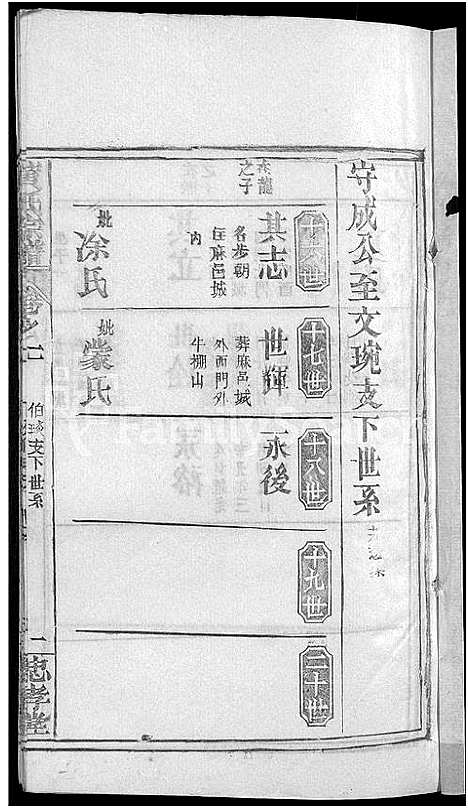 守成公至文琬支下世系
十六世
十七世
十八世
十九世
二十世
之子
其志
名步朝
住麻邑城
內
妣涂氏
世輝
葬麻邑城
外西門外
牛棚山
妣蒙氏
永後
氏宗譜
卷之二
支下世系
二
忠孝堂